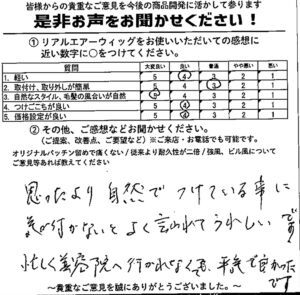 皆様からの貴重なご意見を今後の商品開発に活かして参ります
是非お声をお聞かせください！
① リアルエアーウィッグをお使いいただいての感想に
近い数字に○をつけてください。
質問 大変良い 良い 普通 やや悪い 悪い
1. 軽い 5 4 3 2 1
2. 取付け、取り外しが簡単 5 4 3 2 1
3. 自然なスタイル、毛髪の風合いが自然 5 4 3 2 1
4. つけごこちが良い 5 4 3 2 1
5. 価格設定が良い 5 4 3 2 1
② その他、ご感想などお聞かせください。
（ご提案、改善点、ご要望など）※ご来店・お電話でも可能です。
オリジナルパッチン留めで痛くない/従来より耐久性が二倍/後風、ビル風について
ご意見等あれば教えてください
思ったより自然でつけている事に
気が付かないとよく言われてうれしいです
忙しく美容院へ行かれなく
良かったです
～貴重なご意見を誠にありがとうございました。～